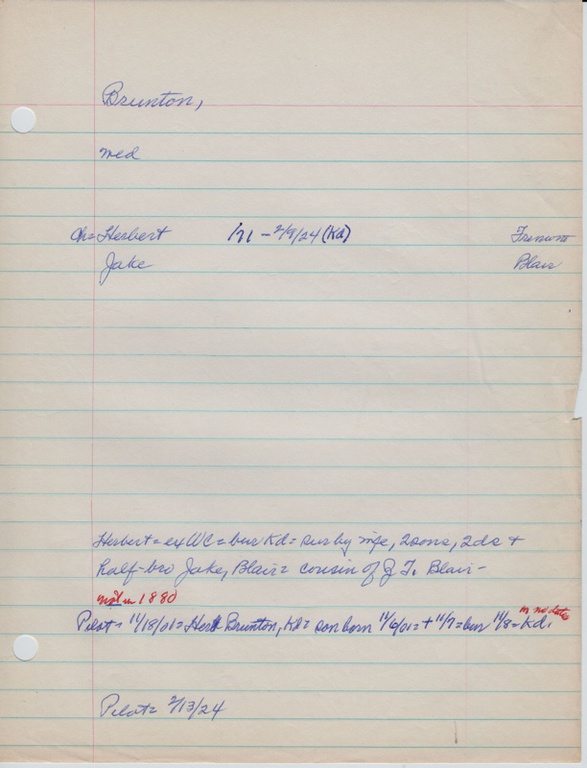 Brunton,
med
Ch= Herbert /71 - 2/9/24 (Kd) Fremont
Jake Blair
Herbert = ex WC = bur Kd = sur by wife, 2 sons, 2 ds +
half-bro Jake, Blair = cousin of J. T. Blair -
not in 1880
in no data
Pilot = 11/18/01 = Herb Brunton, Kd = son born 11/6/01 = + 11/7 = bur 11/8 = Kd.
Pilot = 2/13/24